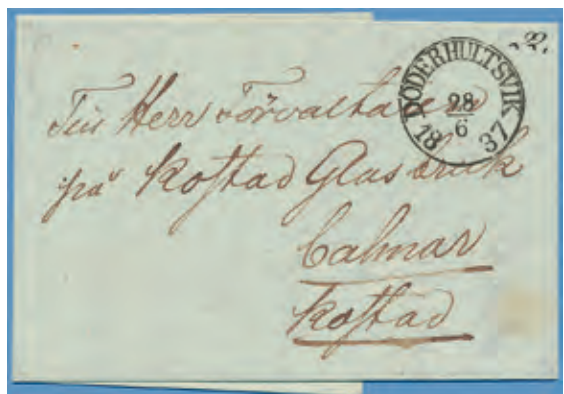 DÖDERHULTSVIK
28
6
18 37
Till Herr Förvaltaren
på Kosstad Glasbruk
Calmar
Kosstad